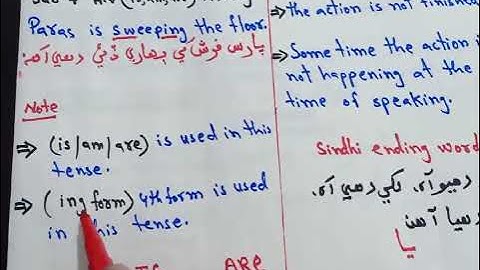 Paras is sweeping the floor.
پارس فرش کي ٻهاري ڏئي رهي آهي.
Note
⇒ (is/am/are) is used in this
tense.
⇒ (ing form) 4th form is used
in this tense.
IS ARE
⇒ the action is not finished
⇒ Some time the action is
not happening at the
time of speaking.
Sindhi ending word
رهيو آه، رهي آه.
رهيا آهن
يا